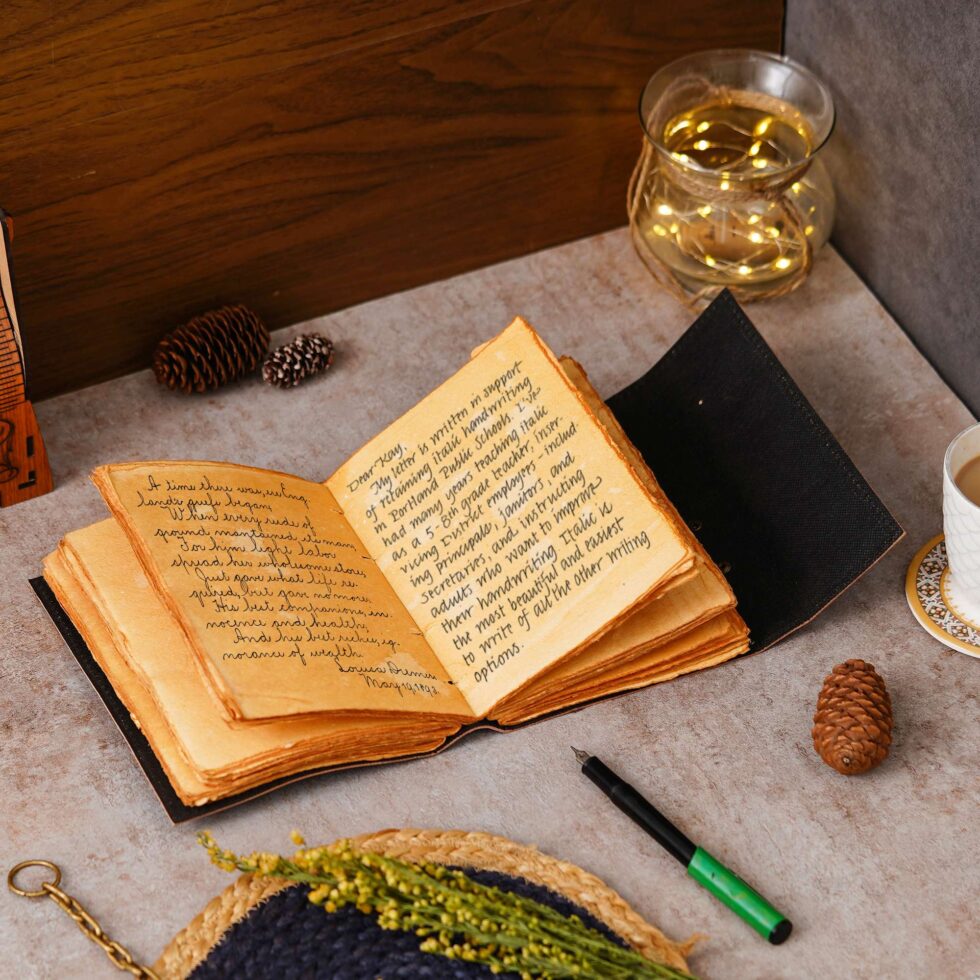 A time there was, ere Eng
lands griefs began,
When every rood of
ground maintained its man;
For him light labor
spread her wholesome store,
Just gave what life re-
quired, but gave no more.
His best companions, in-
nocence and health;
And his best riches, ig-
norance of wealth.
Louisa
May 19, 1898
Dear Kay,
My letter is written in support
of retaining italic handwriting
in Portland Public Schools. I've
had many years teaching italic
as a 5-8th grade teacher, inser-
vicing District employees - includ
ing principals, janitors, and
secretaries, and instructing
adults who want to improve
their handwriting. Italic is
the most beautiful and easiest
to write of all the other writing
options.